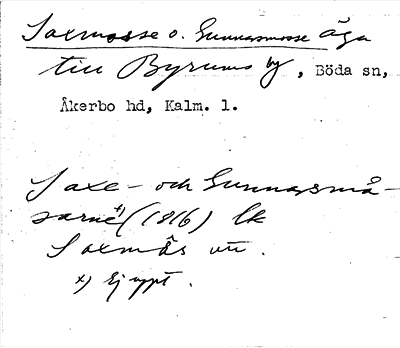 Saxmosse o. Gunnarsmosse äga
till Byrums by, Böda sn,
Åkerbo hd, Kalm. l.
Saxe- och Gunnarsmå-
sarne x) (1816) lk
Saxmås utt.
x) Ej uppt.